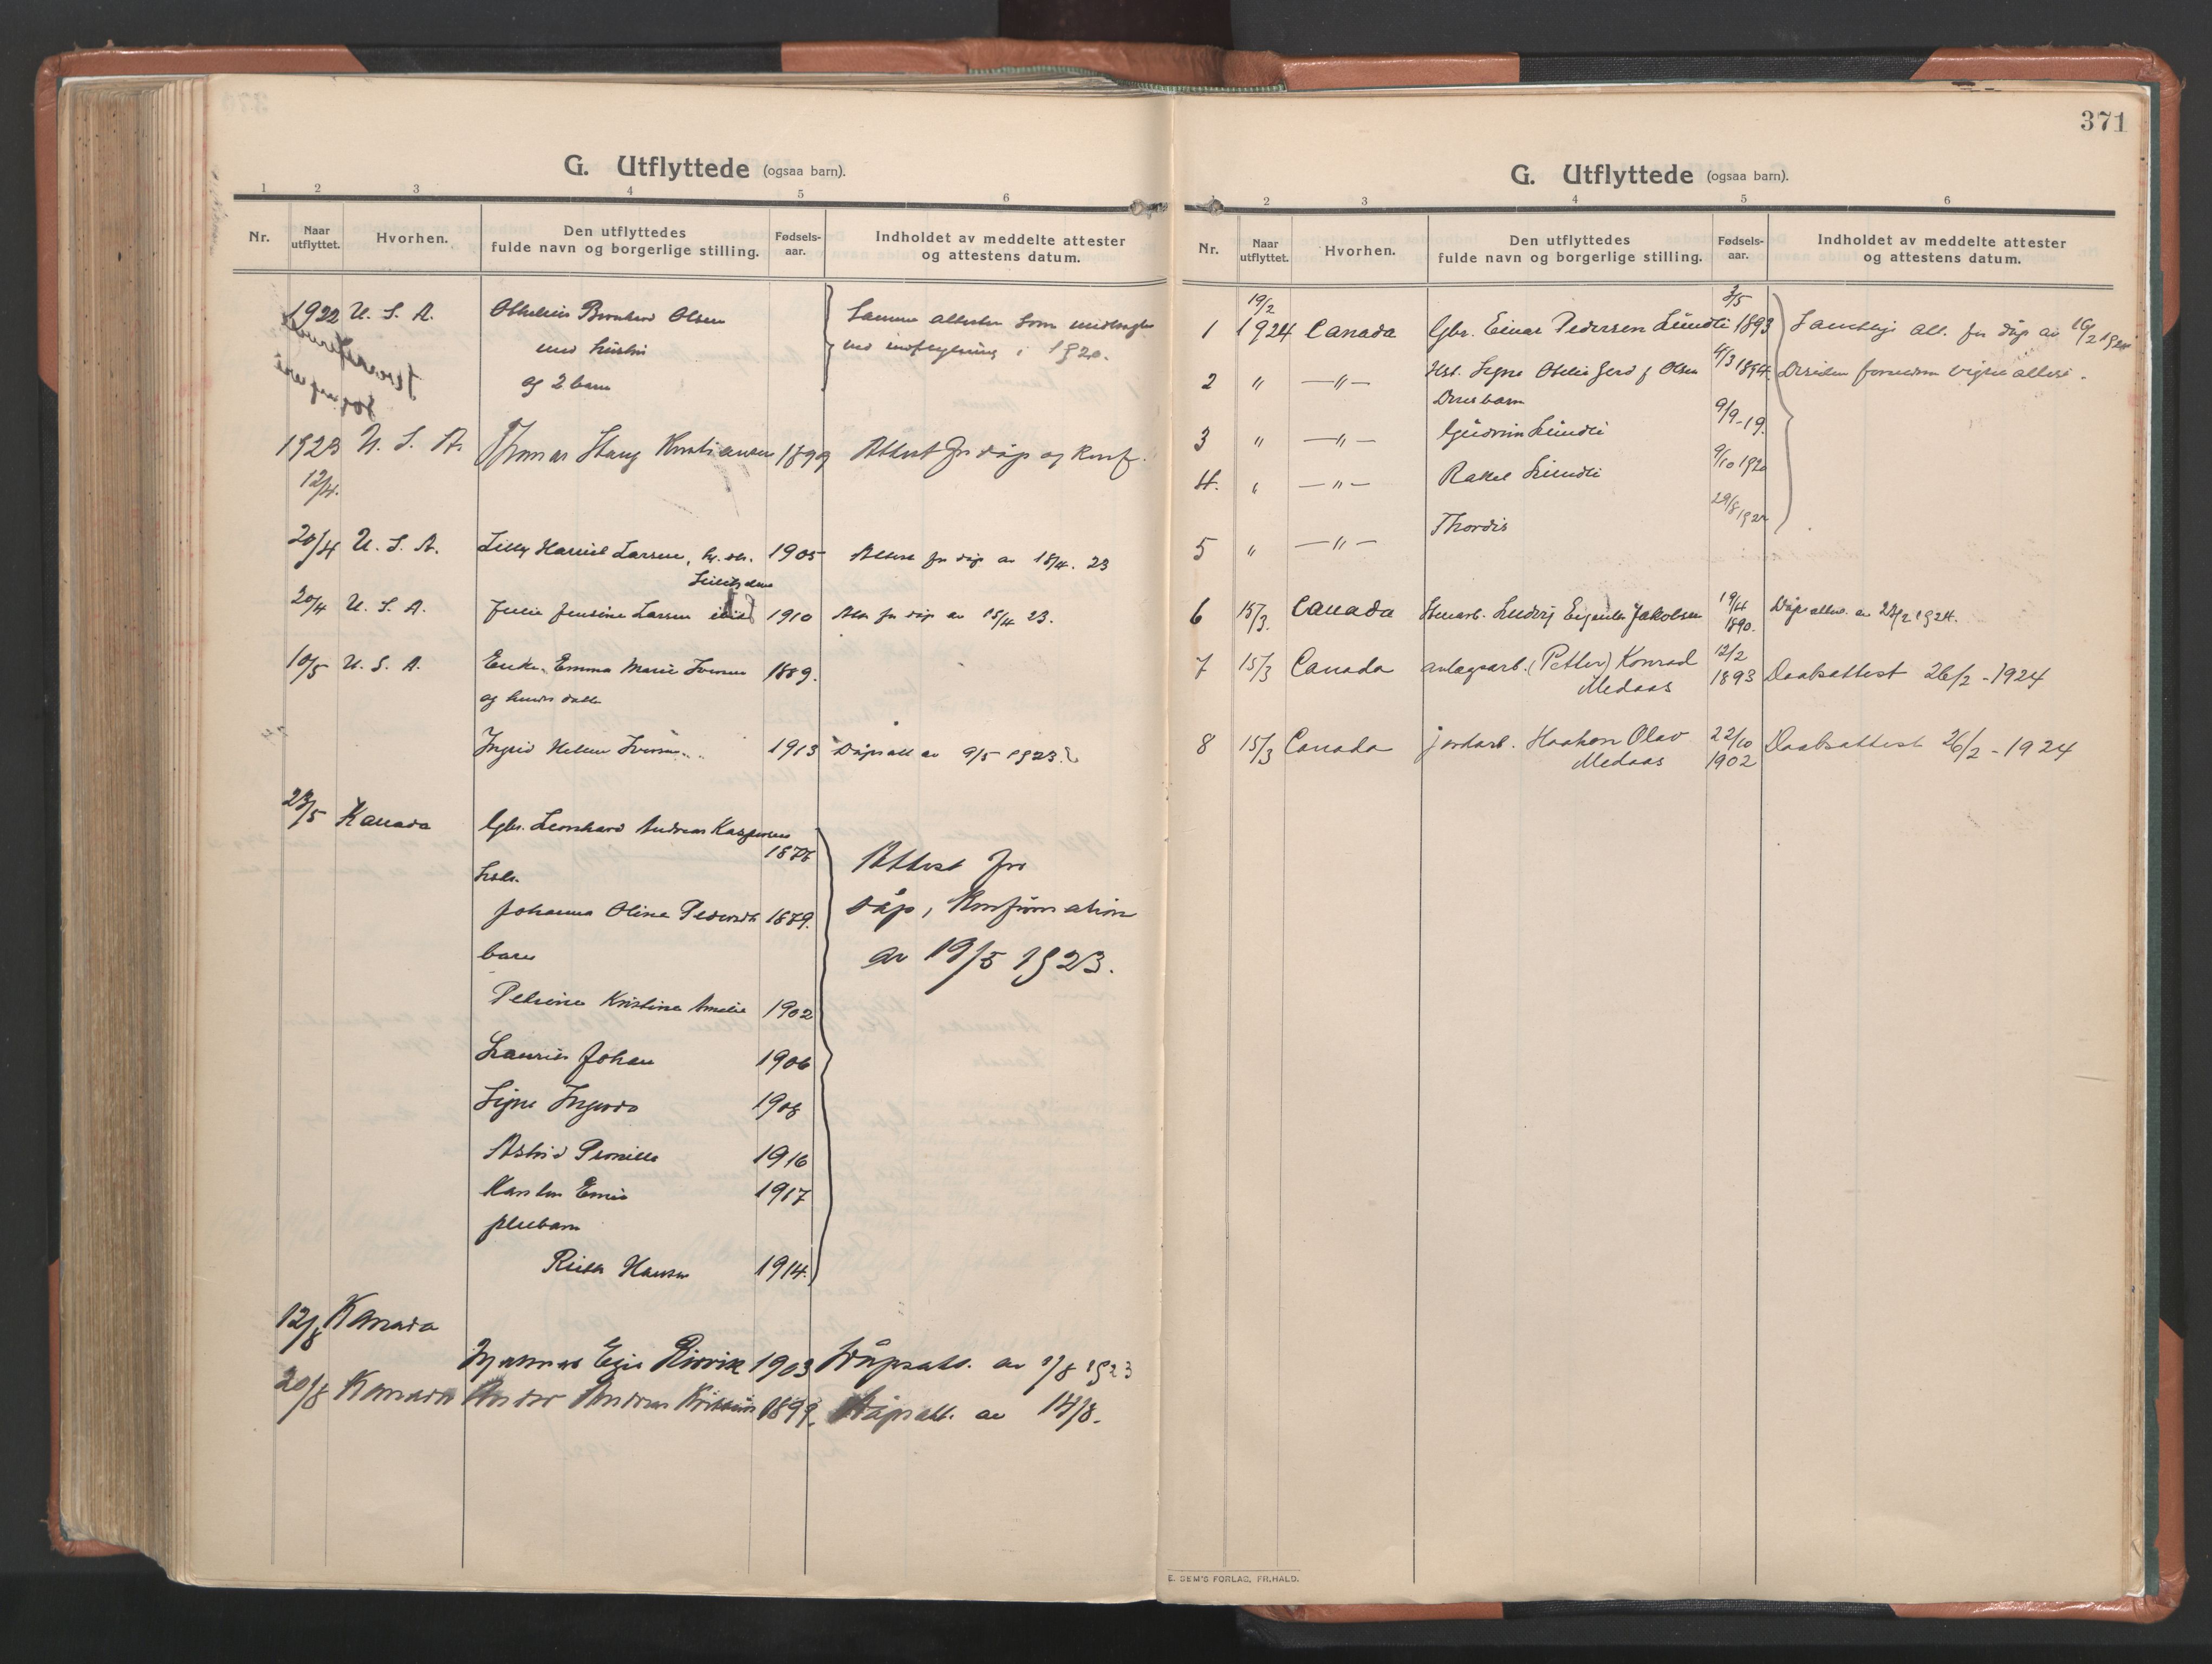 G. Utflyttede (ogsaa barn).
1 2 3 4 5 6
Nr.
Naar utflyttet.
Hvorhen.
Den utflyttedes
fulde navn og borgerlige stilling.
Fødsels-
aar.
Indholdet av meddelte attester
og attestens datum.
1922 U. S. A. Bernhard Olsen Samme attester som
med hustru ved indflytning i 1920.
og 2 barn
1923 U. S. A. Thomas Kristiansen 1899 Attest for dåp og konf.
12/4.
20/4 U. S. A. Lilly Larsen, 1905 Attest for dåp av 18/4. 23
20/4 U. S. A. Julie Jensine Larsen 1910 Att. for dåp av 15/4 23.
10/5 U. S. A. Enke. Emma Marie Iversen 1889.
og hendes datter
Ingrid Helene Iversen 1913 Dåpsatt av 9/5 1923.
23/5 Kanada Gbr. Leonhard Andreas Kaspersen
1877
Hstr.
Attest for
Johanna Oline Pedersdtr 1879. dåp, Konfirmation
barn av 19/5 1923.
Petrine Kristine Amalie 1902
Laurits Johan 1906
Signe Ingarda 1908
Astrid Pernille 1916
Karsten 1917
pleiebarn
Hansen 1914.
12/8 Kanada
Hjalmar 1903 Dåpsatt. av 7/8 1923
20/8 Kanada Andreas 1899. Dåpsatt. av 14/8.
371
G. Utflyttede (ogsaa barn).
2 3 4 5 6
Nr.
Naar
utflyttet.
Hvorhen.
Den utflyttedes
fulde navn og borgerlige stilling.
Fødsels-
aar.
Indholdet av meddelte attester
og attestens datum.
19/2 3/5
1 1924 Canada Gbr. Einar Pedersen Lundli 1893 Samtlige att. for dåp av 16/2 1924
2 " —"— Hst. Signe Otelie Gerd f Olsen 4/3 1894. Desuden forældrene vigselattest.
Deres barn
3 " —"— Gudrun Lundli 9/9-19.
4. " —"— Rakel Lundli 9/10 1920
29/8 1922
5 " —"— Thordis
6 15/3. Canada Ludvig Jakobsen 19/4 1890. Dåpsattest av 27/2 1924.
7 15/3 Canada anlægsarb. (Petter) Konrad 12/2
Medaas 1893 Daabsattest 26/2 - 1924
8 15/3 Canada jordarb. Haakon Olav 22/10 Daabsattest 26/2 - 1924
Medaas 1902
E. SEM'S FORLAG, FR.HALD.